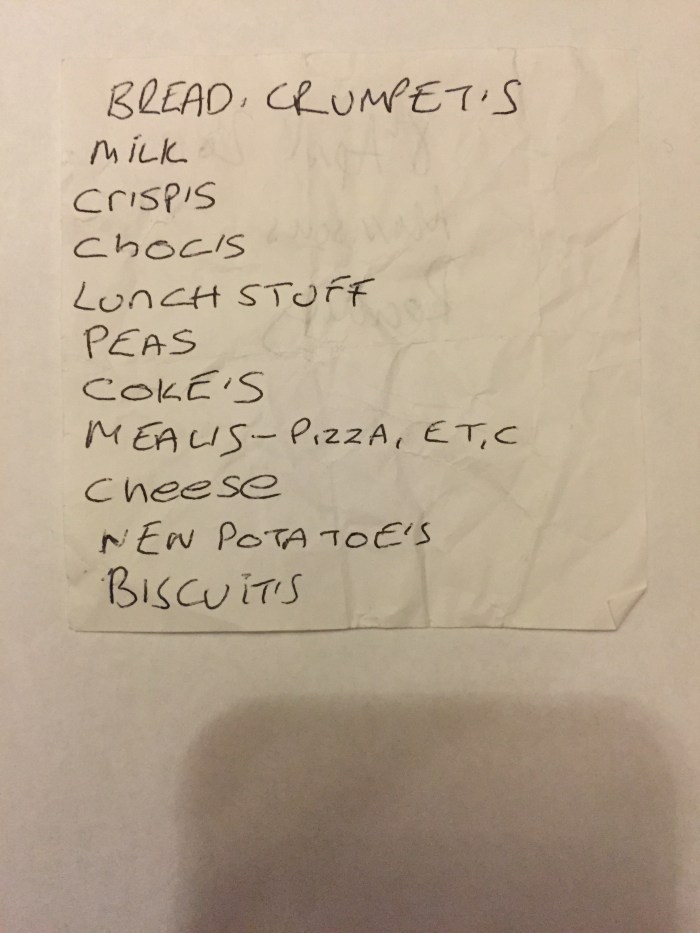 BREAD, CRUMPET'S
MiLK
CRISP'S
ChOC'S
LUnCH STUFF
PEAS
COKE'S
MEAL'S - PIZZA, ET,C
Cheese
NEW POTATOE'S
BISCUiT'S